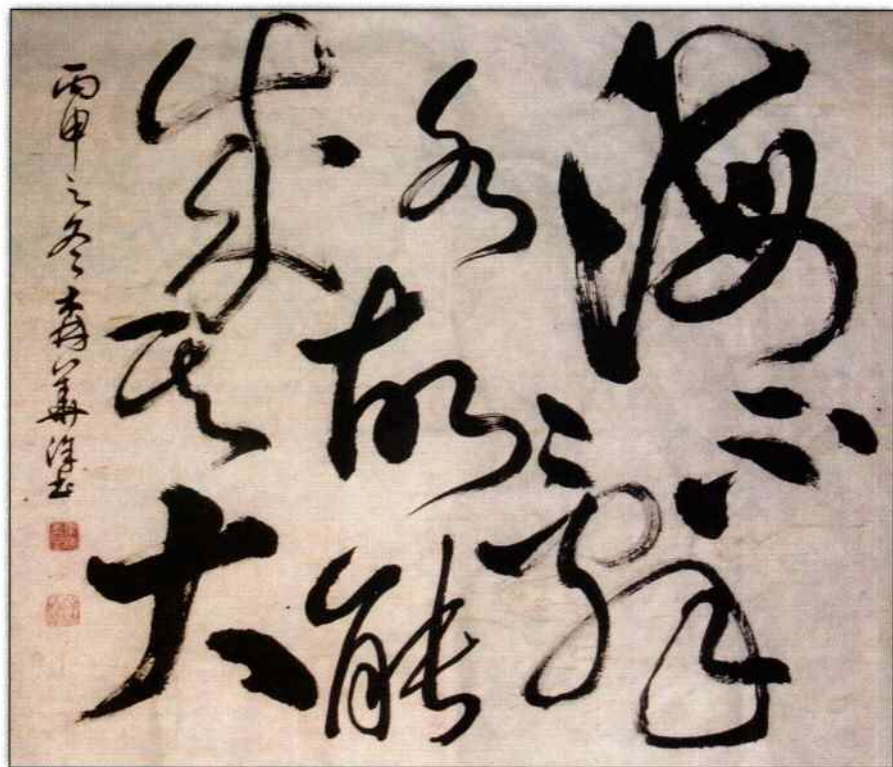 海不辭
水故能
成其大
丙申之冬 華 書